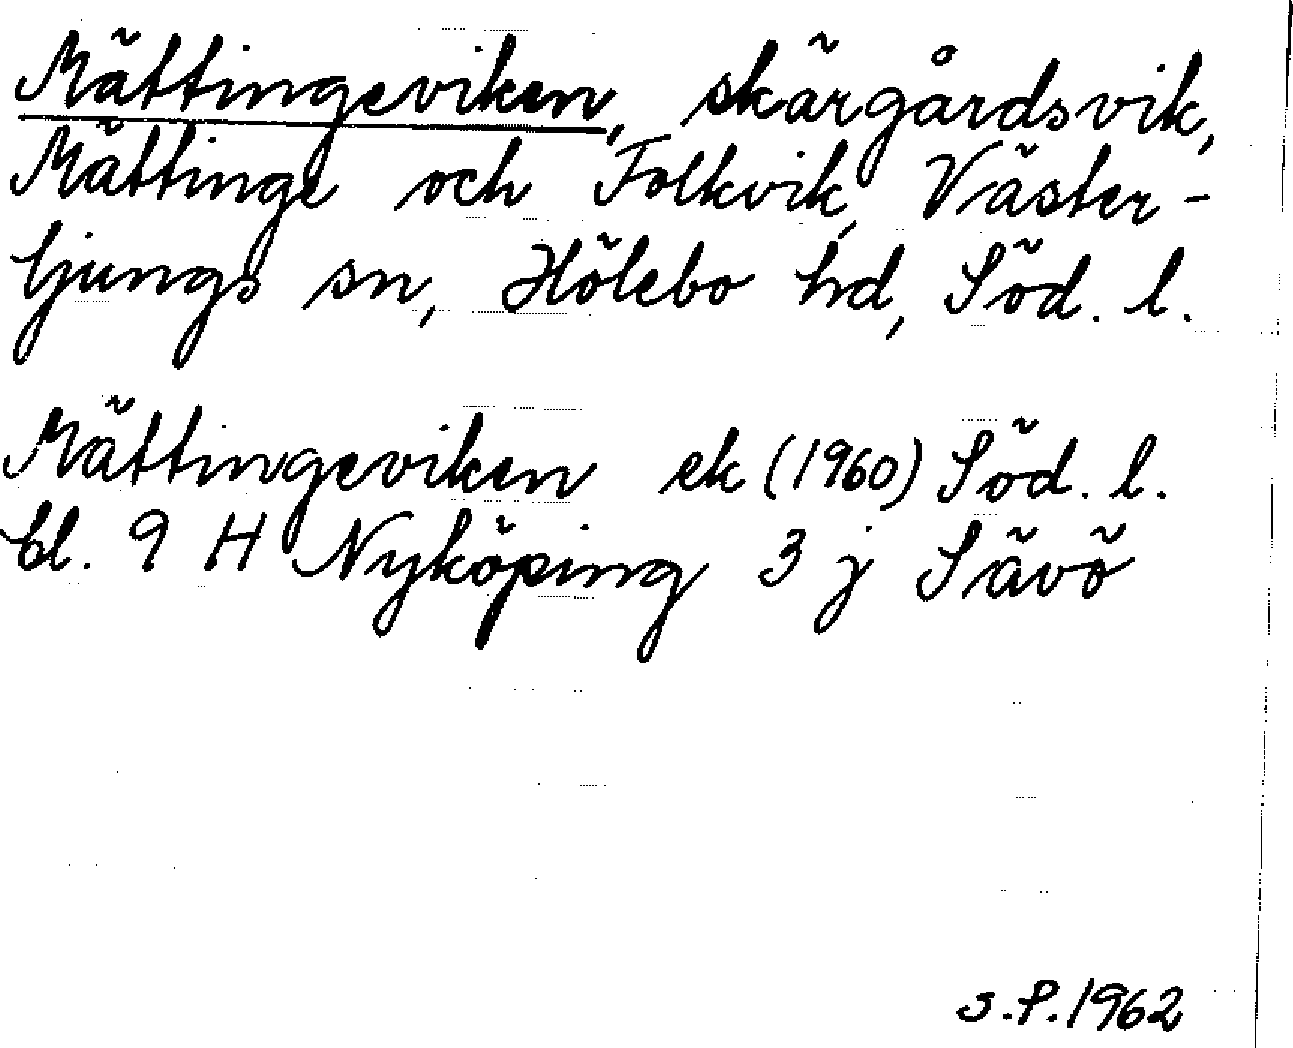 Mättingeviken, skärgårdsvik,
Mättinge och Folkvik, Väster-
ljungs sn, Hölebo hd, Söd. l.
Mättingeviken ek (1960) Söd. l.
bl. 9 H Nyköping 3 j Sävö
S.P. 1962